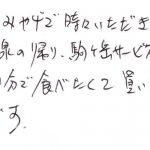 みやげで時々いただき
泉の帰り、駒ヶ岳サービス
分で食べたくて買い
です。